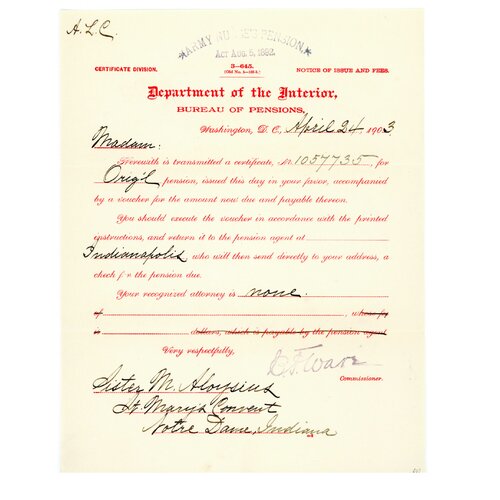 A.L.C.
★ARMY NURSE'S PENSION.★
ACT AUG. 5, 1892.
3—645.
(Old No. 4—165 A.)
CERTIFICATE DIVISION.
NOTICE OF ISSUE AND FEES.
Department of the Interior,
BUREAU OF PENSIONS,
Washington, D. C., April 24 1903
Madam:
Herewith is transmitted a certificate, No. 1057735, for
Orig'l pension, issued this day in your favor, accompanied
by a voucher for the amount now due and payable thereon.
You should execute the voucher in accordance with the printed
instructions, and return it to the pension agent at
Indianapolis who will then send directly to your address, a
check for the pension due.
Your recognized attorney is none.
of , whose fee
is dollars, which is payable by the pension agent
Very respectfully,
Commissioner.
Sister M. Aloysius
St Mary's Convent
Notre Dame, Indiana